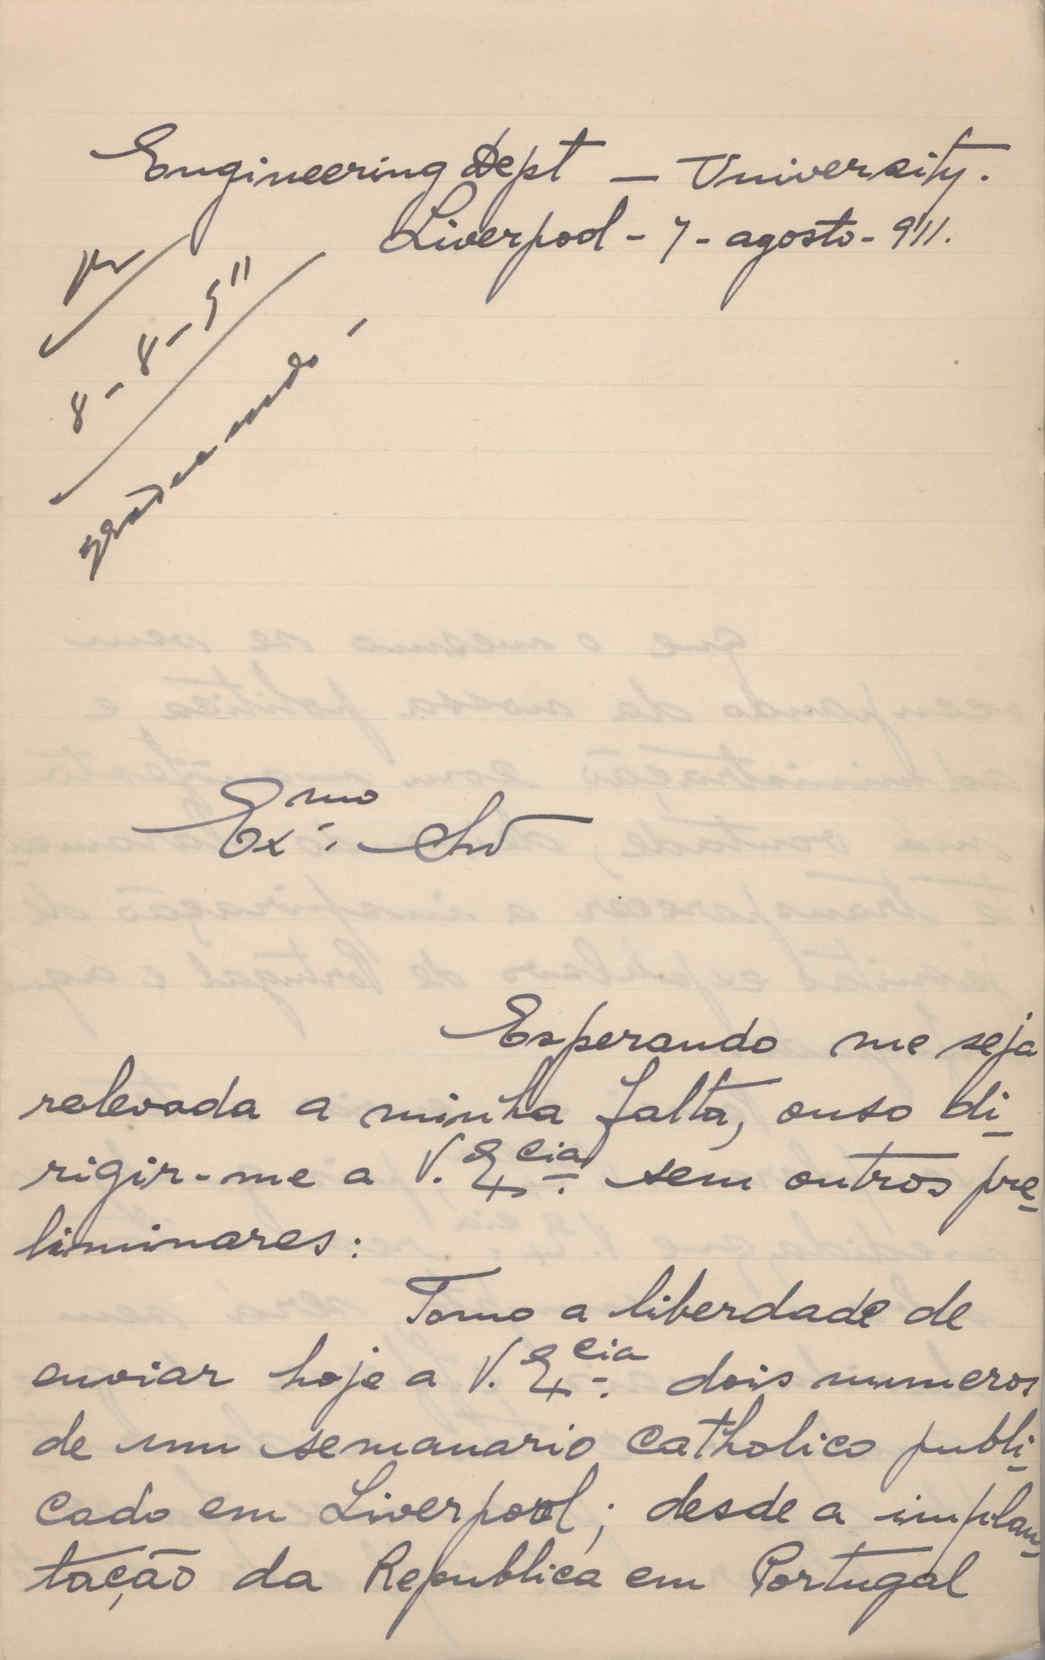 Engineering Dept — University.
Liverpool - 7 - agosto - 911.
8-8-911
Exmo. Snr
Esperando me seja
relevada a minha falta, ouso di-
rigir-me a V. Excia. sem outros pre-
liminares:
Tomo a liberdade de
enviar hoje a V. Excia. dois numeros
de um semanario catholico publi-
cado em Liverpool; desde a implan-
tação da Republica em Portugal